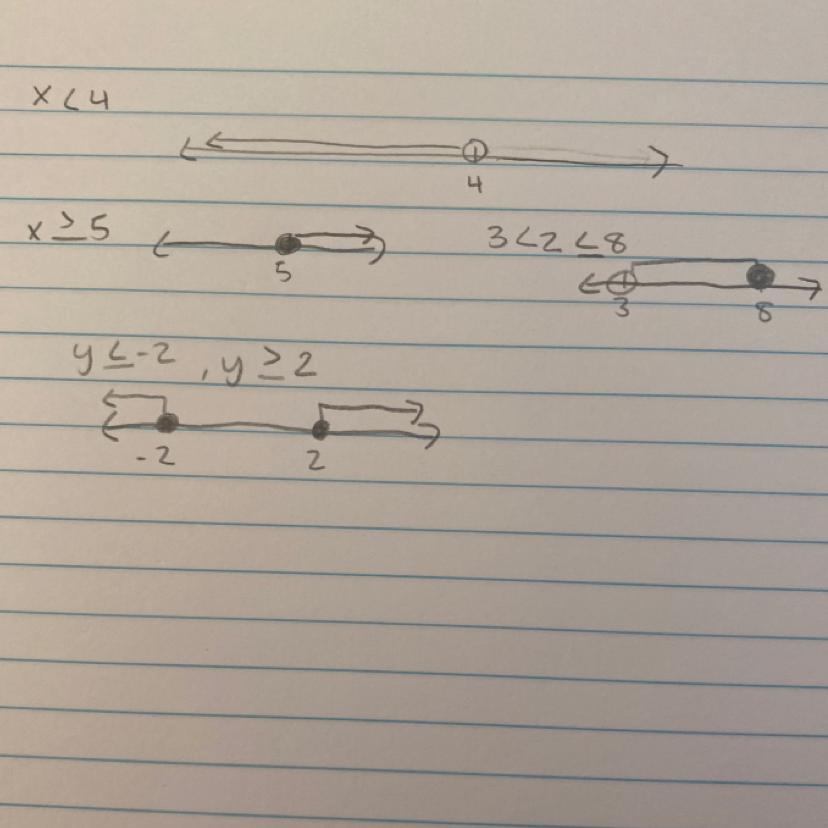 x < 4
4
x ≥ 5
5
3 < 2 ≤ 8
3 8
y ≤ -2 , y ≥ 2
-2 2